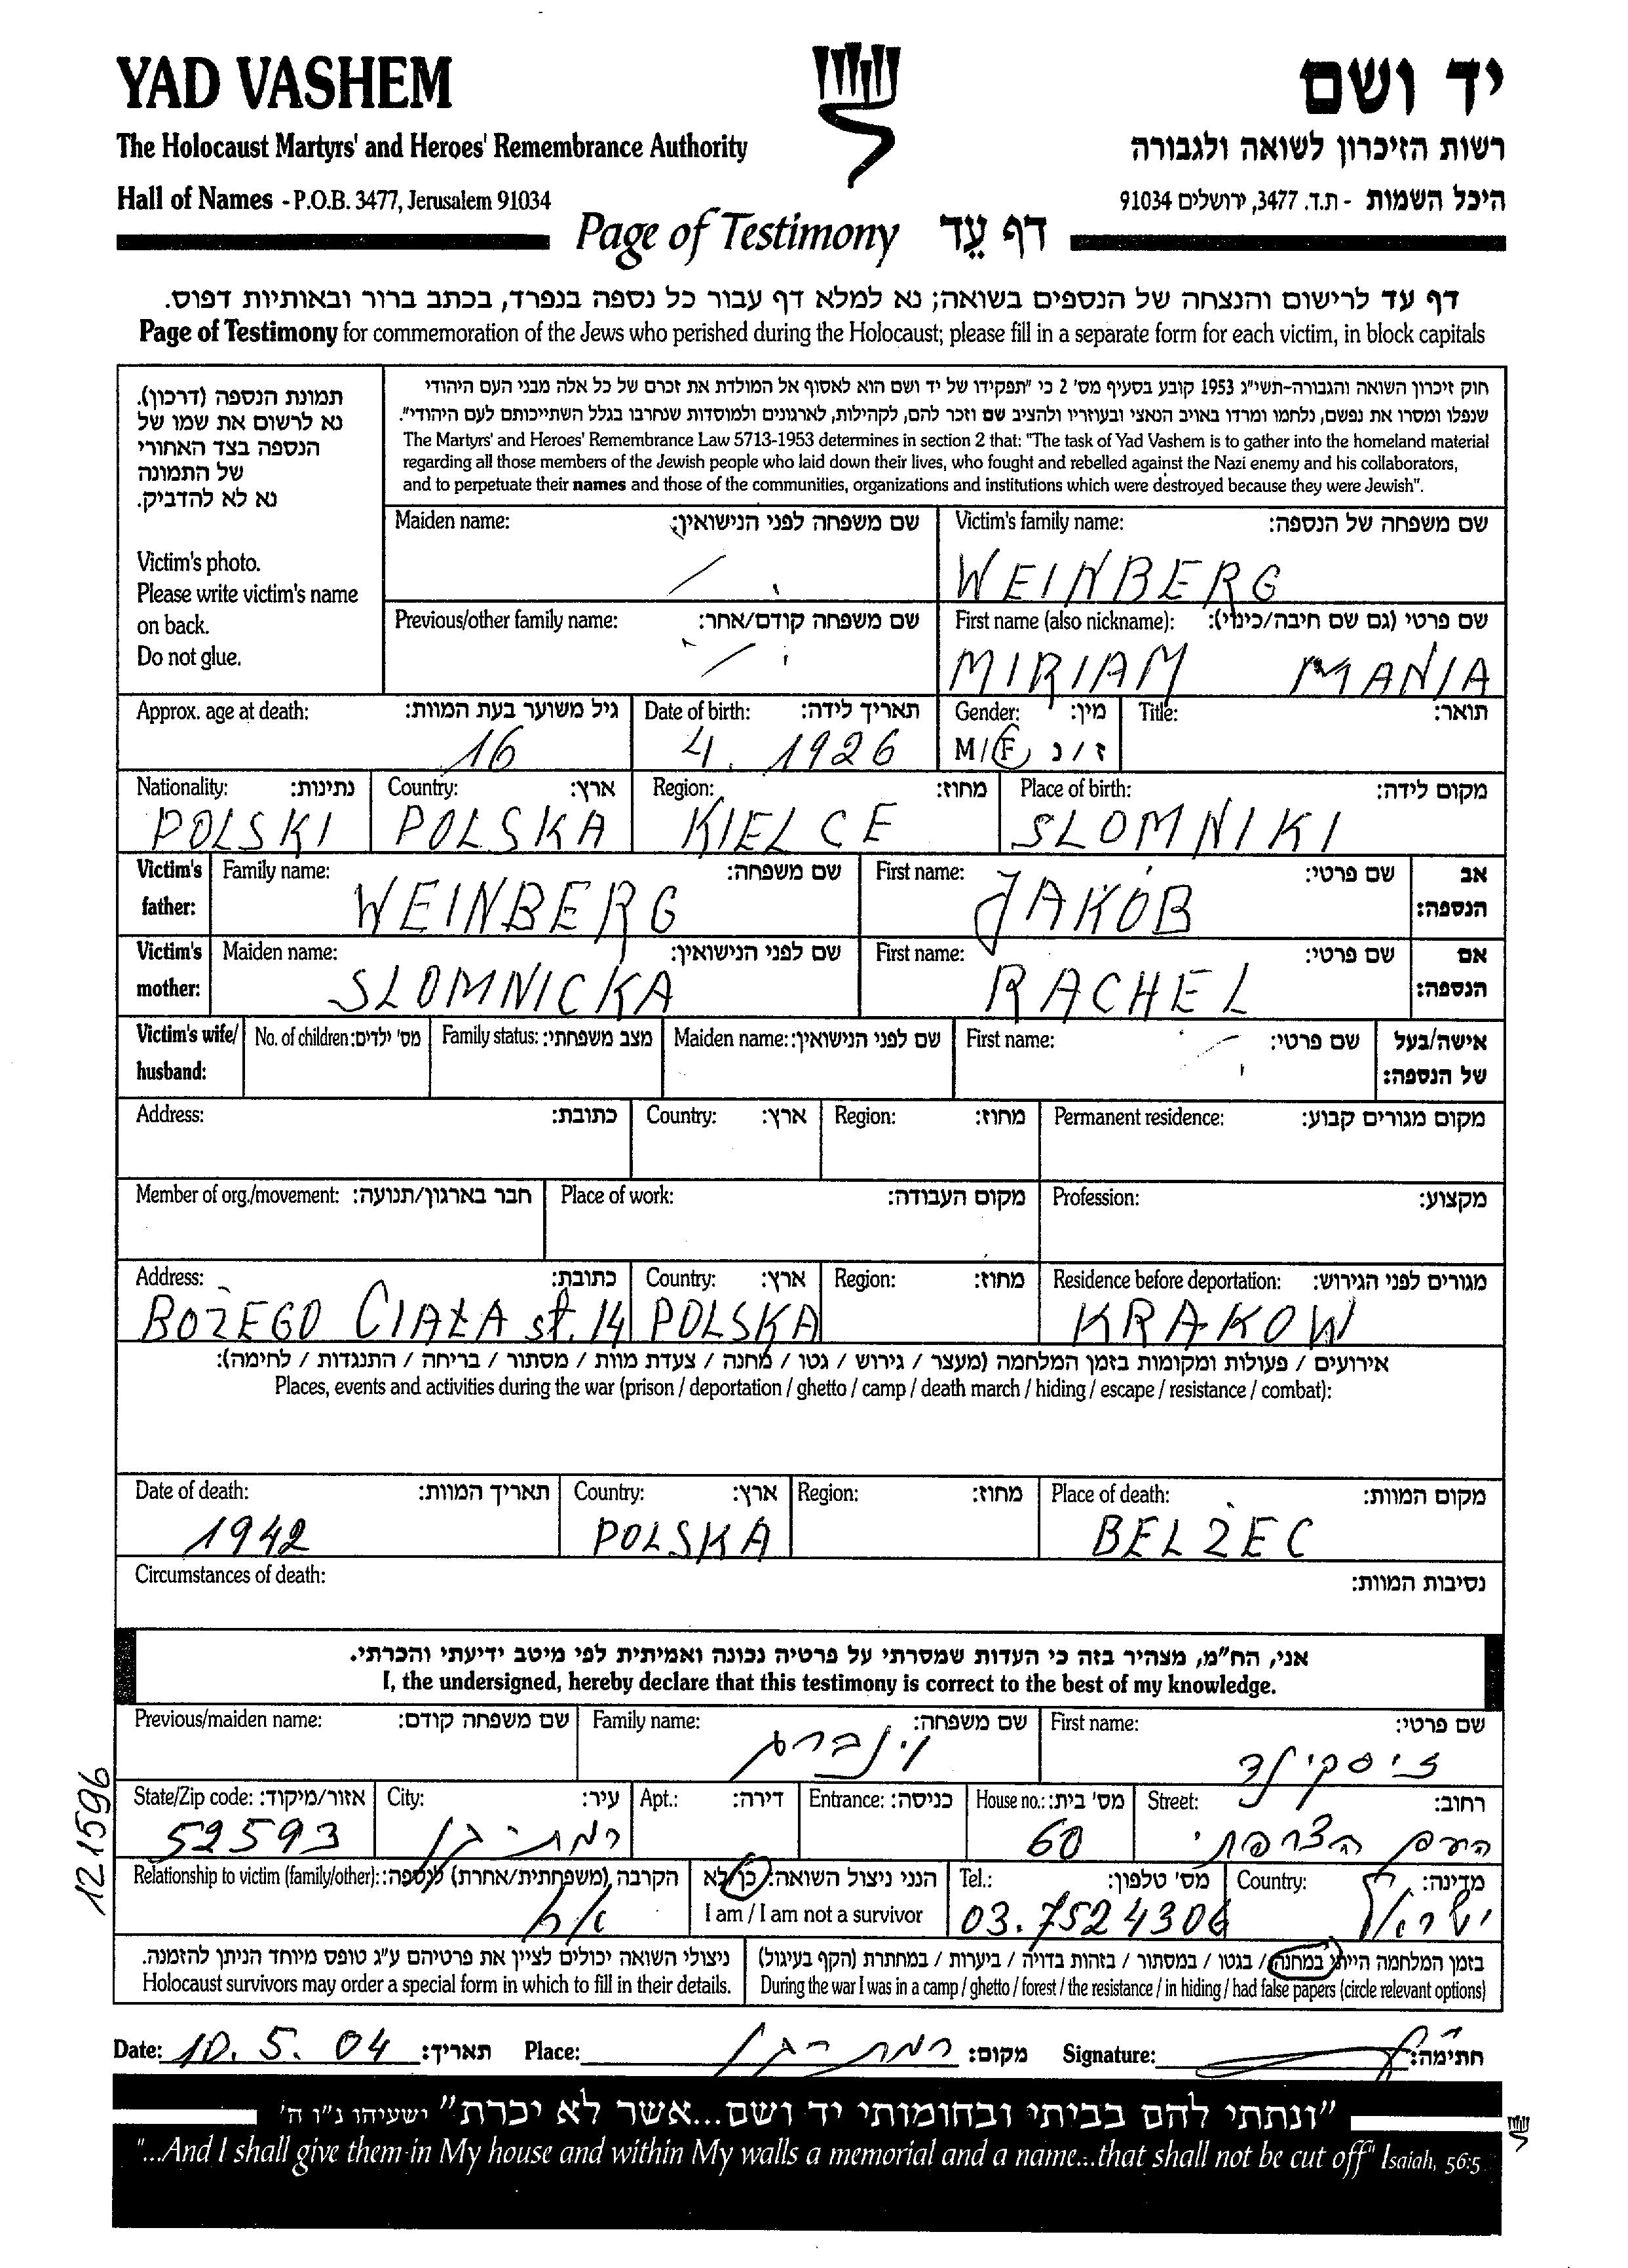 YAD VASHEM
יד ושם
The Holocaust Martyrs' and Heroes' Remembrance Authority
רשות הזיכרון לשואה ולגבורה
Hall of Names - P.O.B. 3477, Jerusalem 91034
היכל השמות - ת.ד. 3477, ירושלים 91034
Page of Testimony דף עֵד
דף עד לרישום והנצחה של הנספים בשואה; נא למלא דף עבור כל נספה בנפרד, בכתב ברור ובאותיות דפוס.
Page of Testimony for commemoration of the Jews who perished during the Holocaust; please fill in a separate form for each victim, in block capitals
תמונת הנספה (דרכון).
נא לרשום את שמו של
הנספה בצד האחורי
של התמונה
נא לא להדביק.
Victim's photo.
Please write victim's name
on back.
Do not glue.
חוק זיכרון השואה והגבורה-תשי"ג 1953 קובע בסעיף מס' 2 כי "תפקידו של יד ושם הוא לאסוף אל המולדת את זכרם של כל אלה מבני העם היהודי
שנפלו ומסרו את נפשם, נלחמו ומרדו באויב הנאצי ובעוזריו ולהציב שם וזכר להם, לקהילות, לארגונים ולמוסדות שנחרבו בגלל השתייכותם לעם היהודי".
The Martyrs' and Heroes' Remembrance Law 5713-1953 determines in section 2 that: "The task of Yad Vashem is to gather into the homeland material
regarding all those members of the Jewish people who laid down their lives, who fought and rebelled against the Nazi enemy and his collaborators,
and to perpetuate their names and those of the communities, organizations and institutions which were destroyed because they were Jewish".
Maiden name: שם משפחה לפני הנישואין: Victim's family name: שם משפחה של הנספה:
WEINBERG
Previous/other family name: שם משפחה קודם/אחר: First name (also nickname): שם פרטי (גם שם חיבה/כינוי):
MIRIAM MANIA
Approx. age at death: גיל משוער בעת המוות: Date of birth: תאריך לידה: Gender: מין: Title: תואר:
16 4. 1926 M/F ז/נ
Nationality: נתינות: Country: ארץ: Region: מחוז: Place of birth: מקום לידה:
POLSKI POLSKA KIELCE SLOMNIKI
Victim's father: Family name: שם משפחה: First name: שם פרטי: אב הנספה:
WEINBERG JAKÓB
Victim's mother: Maiden name: שם לפני הנישואין: First name: שם פרטי: אם הנספה:
SLOMNICKA RACHEL
Victim's wife/ husband: No. of children: מס' ילדים: Family status: מצב משפחתי: Maiden name: שם לפני הנישואין: First name: שם פרטי: אישה/בעל של הנספה:
Address: כתובת: Country: ארץ: Region: מחוז: Permanent residence: מקום מגורים קבוע:
Member of org./movement: חבר בארגון/תנועה: Place of work: מקום העבודה: Profession: מקצוע:
Address: כתובת: Country: ארץ: Region: מחוז: Residence before deportation: מגורים לפני הגירוש:
BOŻEGO CIAŁA st. 14 POLSKA KRAKOW
אירועים / פעולות ומקומות בזמן המלחמה (מעצר / גירוש / גטו / מחנה / צעדת מוות / מסתור / בריחה / התנגדות / לחימה):
Places, events and activities during the war (prison / deportation / ghetto / camp / death march / hiding / escape / resistance / combat):
Date of death: תאריך המוות: Country: ארץ: Region: מחוז: Place of death: מקום המוות:
1942 POLSKA BELŻEC
Circumstances of death: נסיבות המוות:
אני, הח"מ, מצהיר בזה כי העדות שמסרתי על פרטיה נכונה ואמיתית לפי מיטב ידיעתי והכרתי.
I, the undersigned, hereby declare that this testimony is correct to the best of my knowledge.
Previous/maiden name: שם משפחה קודם: Family name: שם משפחה: First name: שם פרטי:
וינברג זיסקינד
State/Zip code: אזור/מיקוד: City: עיר: Apt.: דירה: Entrance: כניסה: House no.: מס' בית: Street: רחוב:
52593 רמת-גן 60 העם הצרפתי
Relationship to victim (family/other): הקרבה (משפחתית/אחרת) לנספה: הנני ניצול השואה: כן/לא Tel.: מס' טלפון: Country: מדינה:
אח I am / I am not a survivor 03.7524306 ישראל
ניצולי השואה יכולים לציין את פרטיהם ע"ג טופס מיוחד הניתן להזמנה. בזמן המלחמה הייתי במחנה / בגטו / במסתור / בזהות בדויה / ביערות / במחתרת (הקף בעיגול)
Holocaust survivors may order a special form in which to fill in their details. During the war I was in a camp / ghetto / forest / the resistance / in hiding / had false papers (circle relevant options)
Date: 10.5.04 תאריך: Place: רמת-גן מקום: Signature: חתימה:
"ונתתי להם בביתי ובחומותי יד ושם...אשר לא יכרת" ישעיהו נ"ו ה'
"...And I shall give them in My house and within My walls a memorial and a name...that shall not be cut off" Isaiah, 56:5
1211596